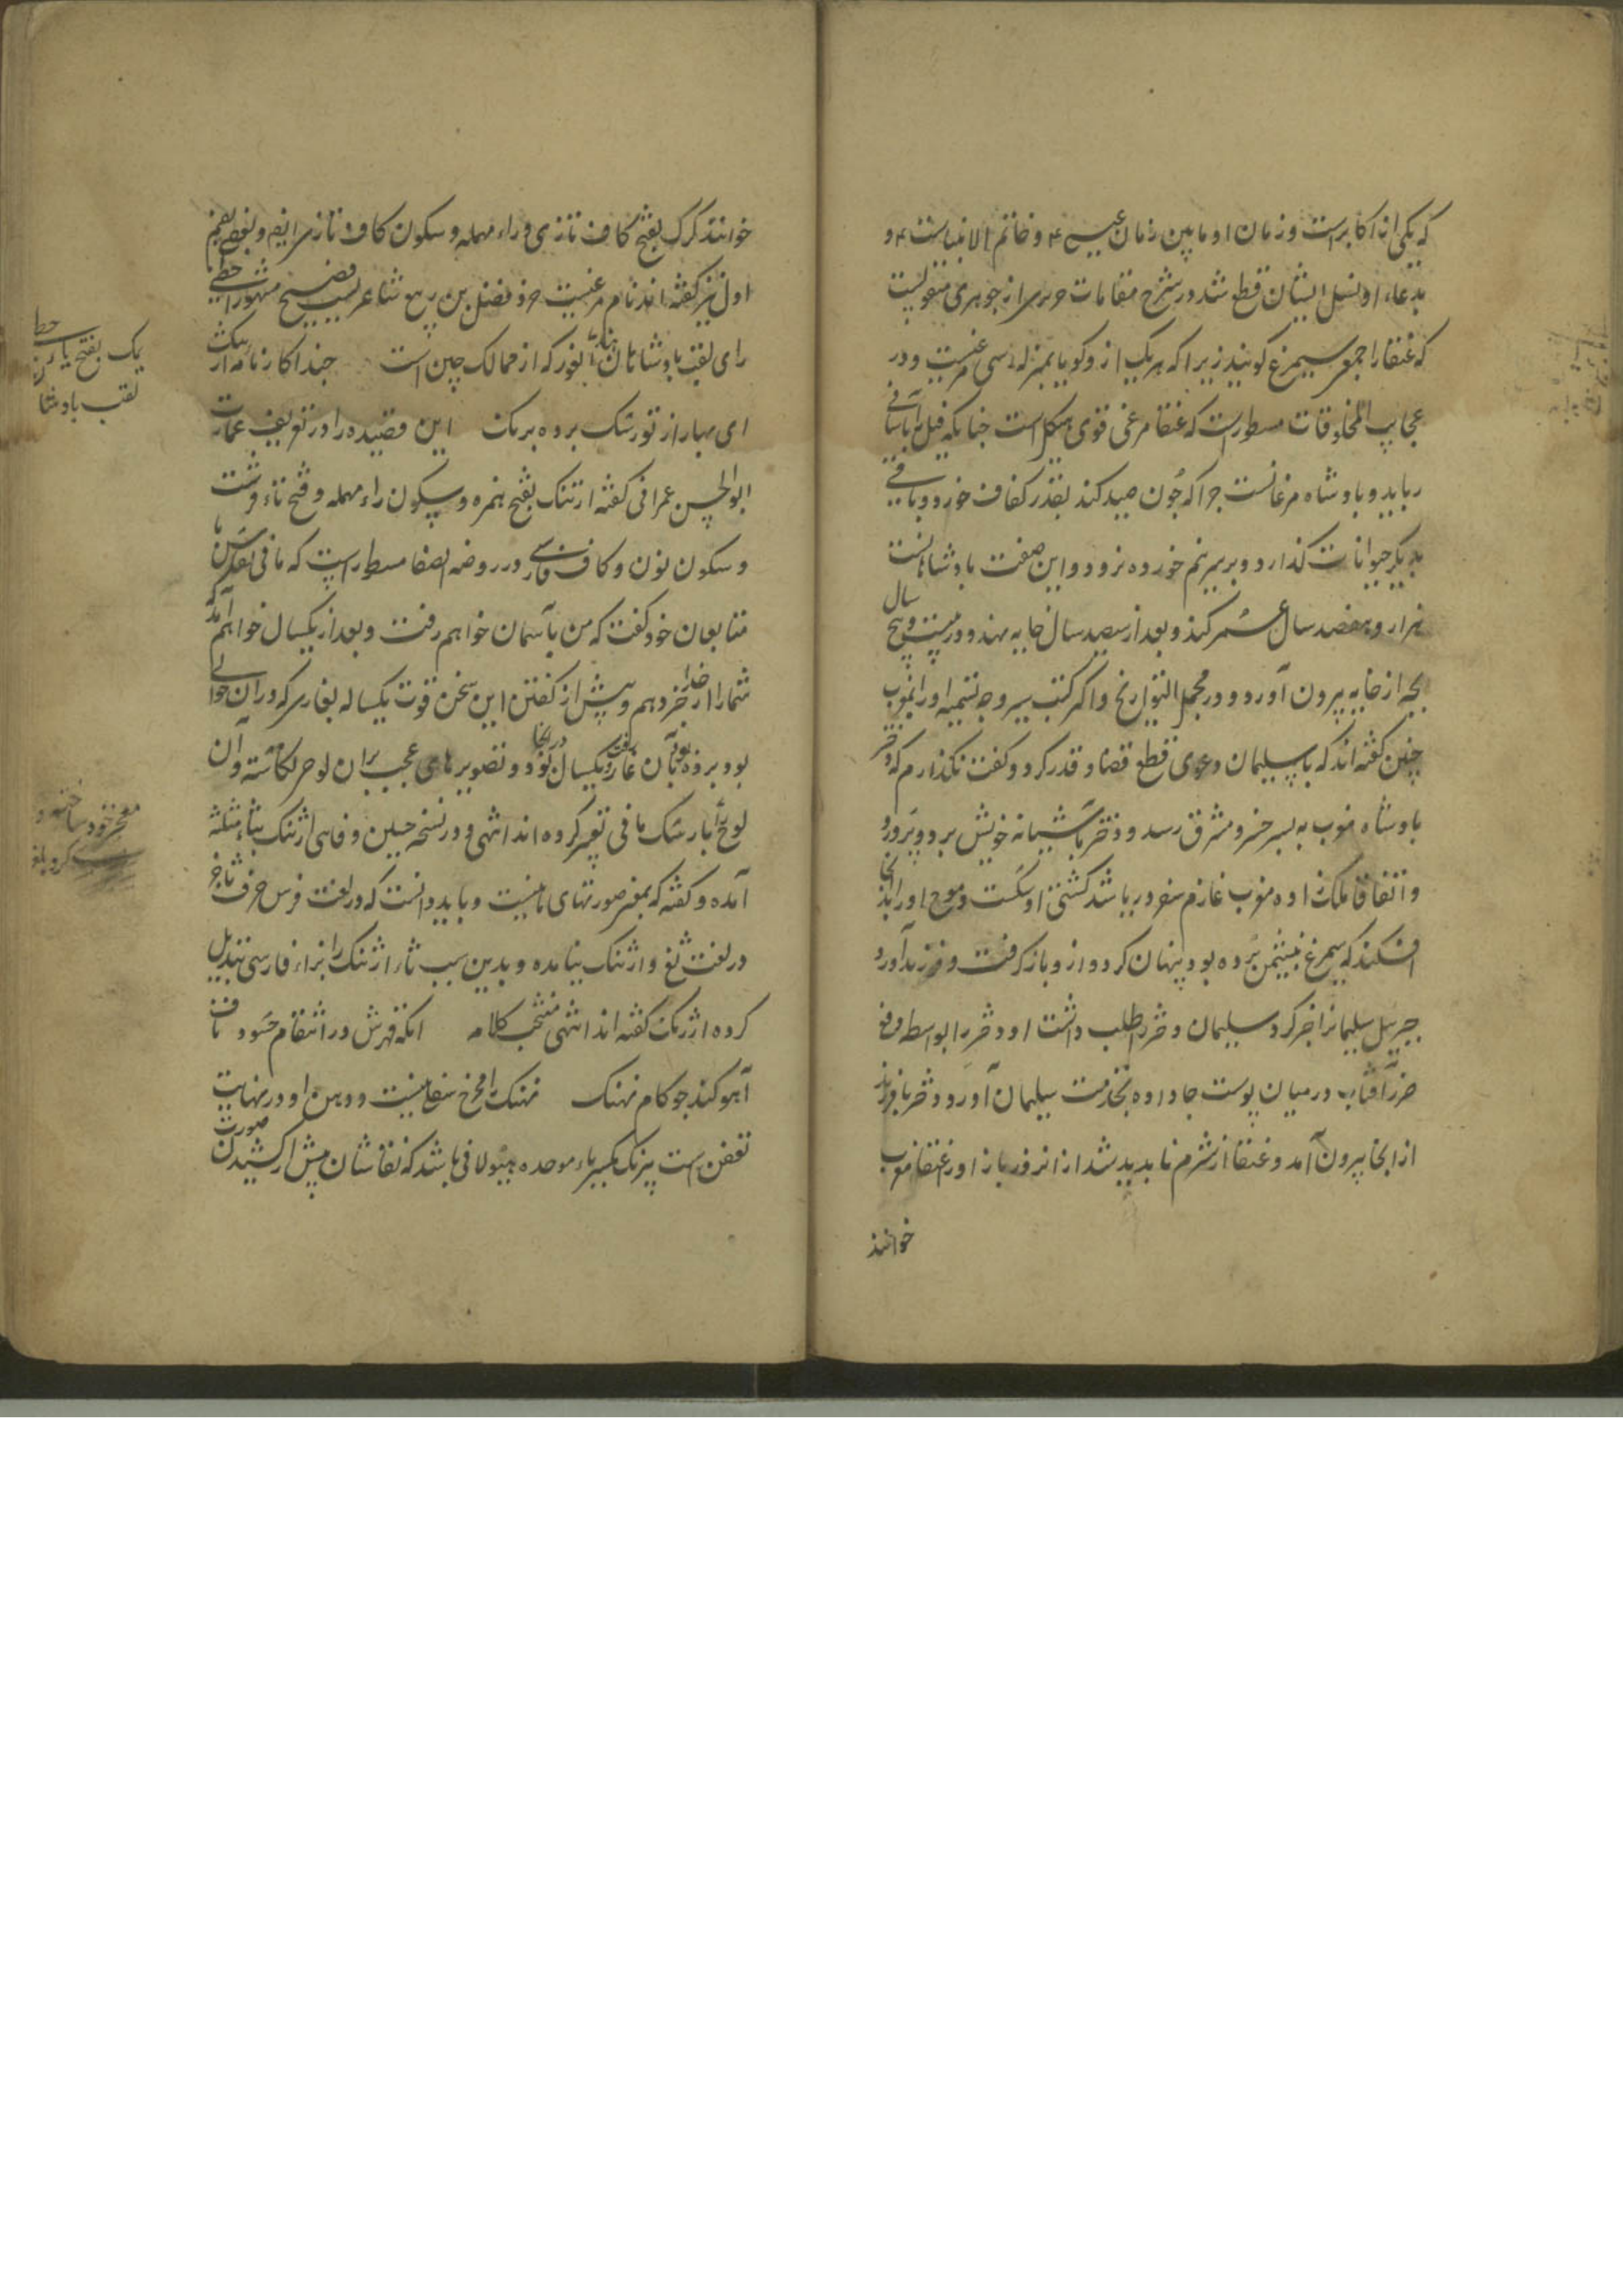 که یکی از اکابرست و زمان او مابین زمان عیسی ۴ و خاتم الانبیاست ۴ و
بدعاء او نسل ایشان قطع شد در شرح مقامات حریری از جوهری منقولست
که عنقا را جمعی سیمرغ کویند زیرا که هر یک از وکویا بمنزله سی مرغیست و در
عجایب المخلوقات مسطورست که عنقا مرغی قوی هیکل است چنانکه فیل را بآسانی
رباید و بادشاه مرغانست چرا که چون صید کند بقدر کفاف خورد و باقی
بدیکر حیوانات کذارد و بر سر نیم خورده نرود و این صفت بادشاهانست
هزار و هفصد سال عمر کند و بعد از سیصد سال خایه نهد و در بیست و پنج سال
بچه از خایه بیرون آورد و در مجمل التواریخ و اکثر کتب سیر وجه تسمیه او را بمغرب
چنین کفته اند که با سلیمان دعوی قطع قضا و قدر کرد و کفت نکذارم که دختر
بادشاه مغرب به پسر مشرق رسد و دختر بآشیانه خویش برد و پرورد
و اتفاقا ملک زاده مغرب عازم سفر دریا شد کشتی او شکست و موج او را بدانجا
افکند که سیمرغ نشیمن برده بود پنهان کرد و از و باز کرفت و فرزند آورد
جبریل سلیمانرا خبر کرد سلیمان دختر را طلب داشت او دختر را بواسطه دفع
ضرر آفتاب در میان پوست جا داده بخدمت سلیمان آورد و دختر با فرزند
از انجا بیرون آمد و عنقا از شرم نابدید شد از انروز باز او را عنقا مغرب
خوانند
خوانند کرک بفتح کاف تازی و راء مهمله و سکون کاف تازی ایضا و بضم
اول نیز کفته اند نام مرغیست فضل بن ربیع شاعریست فصیح مشهور خطی
رای لقب بادشاهان بغور که از ممالک چین است حبذا کارنامه ارتنک
ای بهار از تو رشک برده برنک این قصیده را در تعریف عمارت
ابوالحسن عمرانی کفته ارتنک بفتح همزه و سکون راء مهمله و فتح تاء قرشت
و سکون نون و کاف فارسی در روضه الصفا مسطورست که مانی نقاش با
متابعان خود کفت که من بآسمان خواهم رفت و بعد از یکسال خواهم آمد که
شما را از خدا خبر دهم و پیش از کفتن این سخن قوت یکساله بغاری که در ان حوالی
بود برده بود بآن غار رفت یکسال در آنجا بود و تصویرهای عجب بران لوح نکاشته و آن
لوح را بارتنک مانی تعبیر کرده اند انتهی و در نسخه حسین وفایی ارثنک بثاء مثلثه
آمده و کفته که بمعنی صورتهای مانیست و باید دانست که در لغت فرس حرف ثا جز
در لغت ثغ و ارثنک نیامده و بدین سبب ثاء ارثنک را بزاء فارسی تبدیل
کرده ارژنک کفته اند انتهی منتخب کلامه انکه قهرش در انتقام حسود ناف
آهو کند چو کام نهنک نهنک را مخرج سفلی نیست و دهن او در نهایت
تعفن است بیرنک بکسر باء موحده هیولائی باشد که نقاشان پیش از کشیدن صورت
یک بفتح یا
لقب بادشا